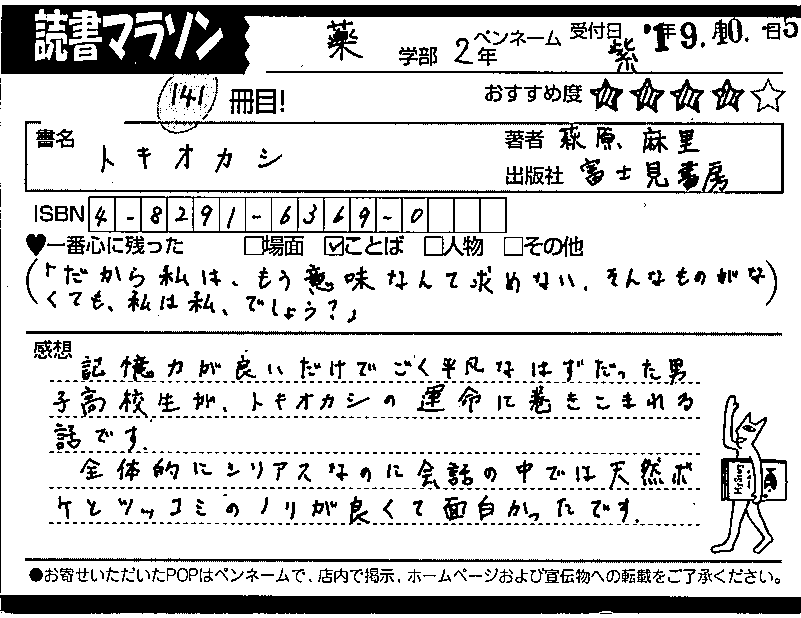 読書マラソン
薬 学部 2年 ペンネーム 紫 受付日 '19.10.-5
141 冊目! おすすめ度 ★★★★☆
書名 トキオカシ
著者 萩原 麻里
出版社 富士見書房
ISBN 4-8291-6369-0
♥一番心に残った □場面 ☑ことば □人物 □その他
(「だから私は、もう意味なんて求めない。そんなものがな
くても、私は私、でしょう?」)
感想
記憶力が良いだけでごく平凡なはずだった男
子高校生が、トキオカシの運命に巻きこまれる
話です。
全体的にシリアスなのに会話の中では天然ボ
ケとツッコミのノリが良くて面白かったです。
●お寄せいただいたPOPはペンネームで、店内で掲示、ホームページおよび宣伝物への転載をご了承ください。